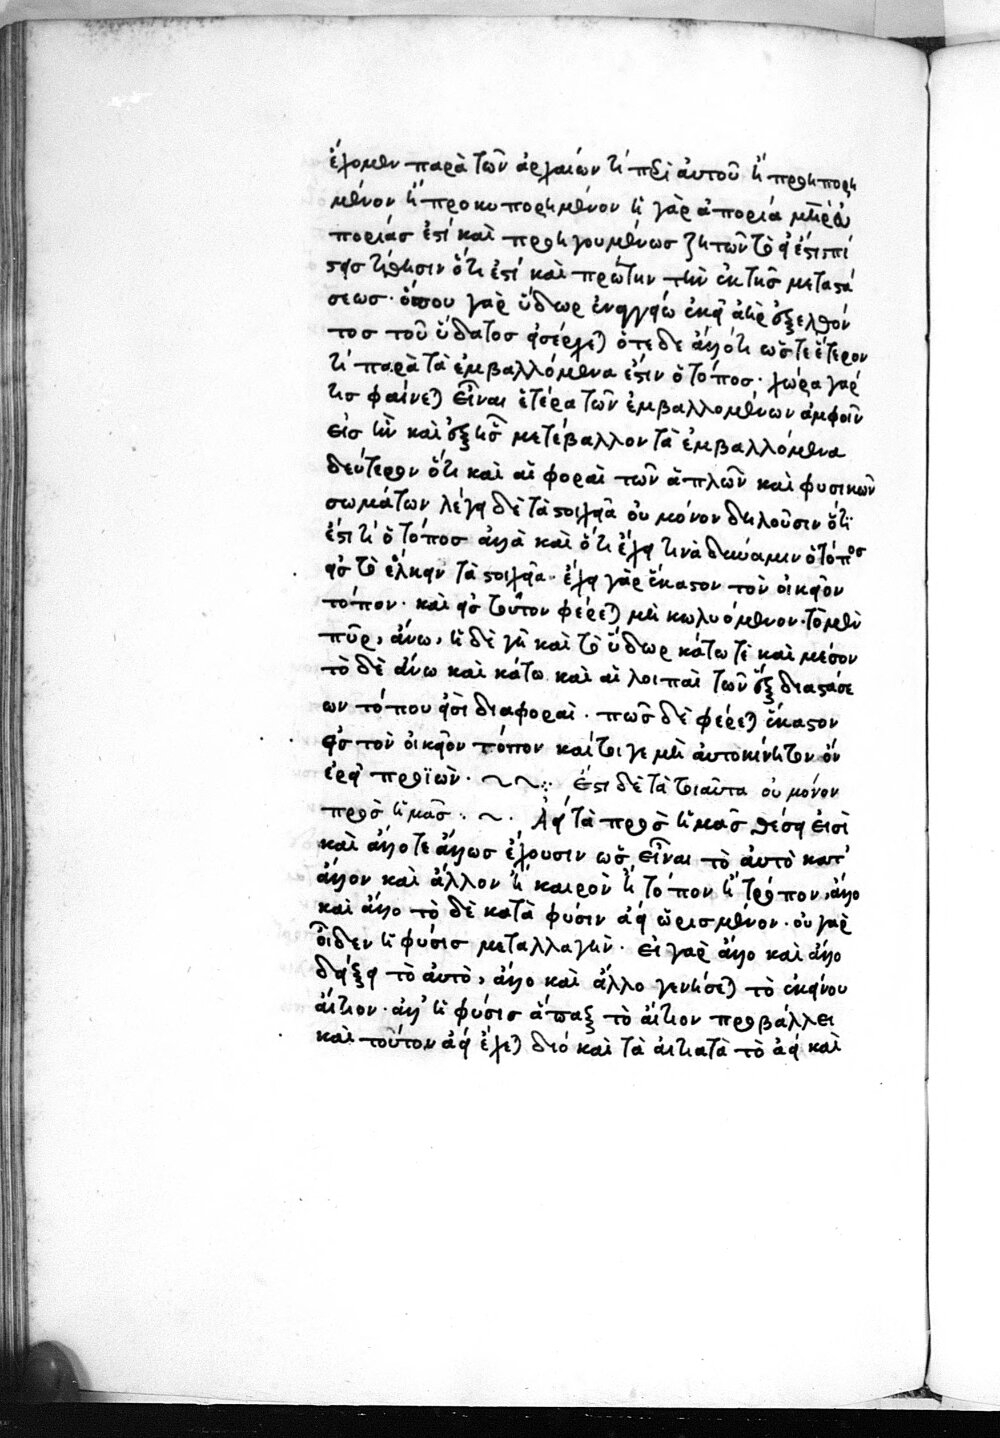 ἔχομεν παρὰ τῶν ἀρχαίων τί περὶ αὐτοῦ ἢ προηπορη
μένον ἢ προευπορημένον ἡ γὰρ ἀπορία μήτηρ εὐ
πορίας ἐστί καὶ προηγουμένως ζητῶν τὸ εἰ ἔστι πί
στεις τίθησιν ὅτι ἐστί καὶ πρώτην τὴν ἐκ τῆς μεταστά
σεως· ὅπου γὰρ ὕδωρ ἐν ἀγγείω ἐκεῖ ἀὴρ ἐξελθόν
τος τοῦ ὕδατος εἰσέρχεται ὁτὲ δὲ ἄλλό τι ὥστε ἕτερον
τί παρὰ τὰ ἐμβαλλόμενα ἐστὶν ὁ τόπος· χώρα γάρ
τις φαίνεται εἶναι ἑτέρα τῶν ἐμβαλλομένων ἀμφοῖν
εἰς ἣν καὶ ἐξ ἧς μετέβαλλον τὰ ἐμβαλλόμενα
δεύτερον ὅτι καὶ αἱ φοραὶ τῶν ἁπλῶν καὶ φυσικῶν
σωμάτων λέγει δὲ τὰ στοιχεῖα οὐ μόνον δηλοῦσιν ὅτι
ἔστι τί ὁ τόπος ἀλλὰ καὶ ὅτι ἔχει τινὰ δύναμιν ὁ τόπος
εἰς τὸ ἕλκειν τὰ στοιχεῖα· ἔχει γὰρ ἕκαστον τὸν οἰκεῖον
τόπον· καὶ εἰς τοῦτον φέρεται μὴ κωλυόμενον· τὸ μὲν
πῦρ, ἄνω, ἡ δὲ γῆ καὶ τὸ ὕδωρ κάτω τὲ καὶ μέσον
τὸ δὲ ἄνω καὶ κάτω καὶ αἱ λοιπαὶ τῶν ἓξ διαστάσε
ων τόπου εἰσὶ διαφοραὶ· πῶς δὲ φέρεται ἕκαστον
εἰς τὸν οἰκεῖον τόπον καίτοιγε μὴ αὐτοκίνητον ὂν
ἐρεῖ προϊὼν· ἔστι δὲ τὰ τοιαῦτα οὐ μόνον
πρὸς ἡμᾶς· Ἀεὶ τὰ πρὸς ἡμᾶς θέσει εἰσὶ
καὶ ἄλλοτε ἄλλως ἔχουσιν ὡς εἶναι τὸ αὐτὸ κατ'
ἄλλον καὶ ἄλλον ἢ καιρὸν ἢ τόπον ἢ τρόπον, ἄλλο
καὶ ἄλλο τὸ δὲ κατὰ φύσιν ἀεὶ ὡρισμένον· οὐ γὰρ
οἶδεν ἡ φύσις μεταλλαγὴν· εἰ γὰρ ἄλλο καὶ ἄλλο
δείξει τὸ αὐτὸ, ἄλλο καὶ ἄλλο γενήσεται τὸ ἐκείνου
αἴτιον· ἀλλ' ἡ φύσις ἅπαξ τὸ αἴτιον προβάλλει
καὶ τοῦτον ἀεὶ ἔχεται διό καὶ τὰ αἰτιατὰ τὸ ἀεὶ καὶ